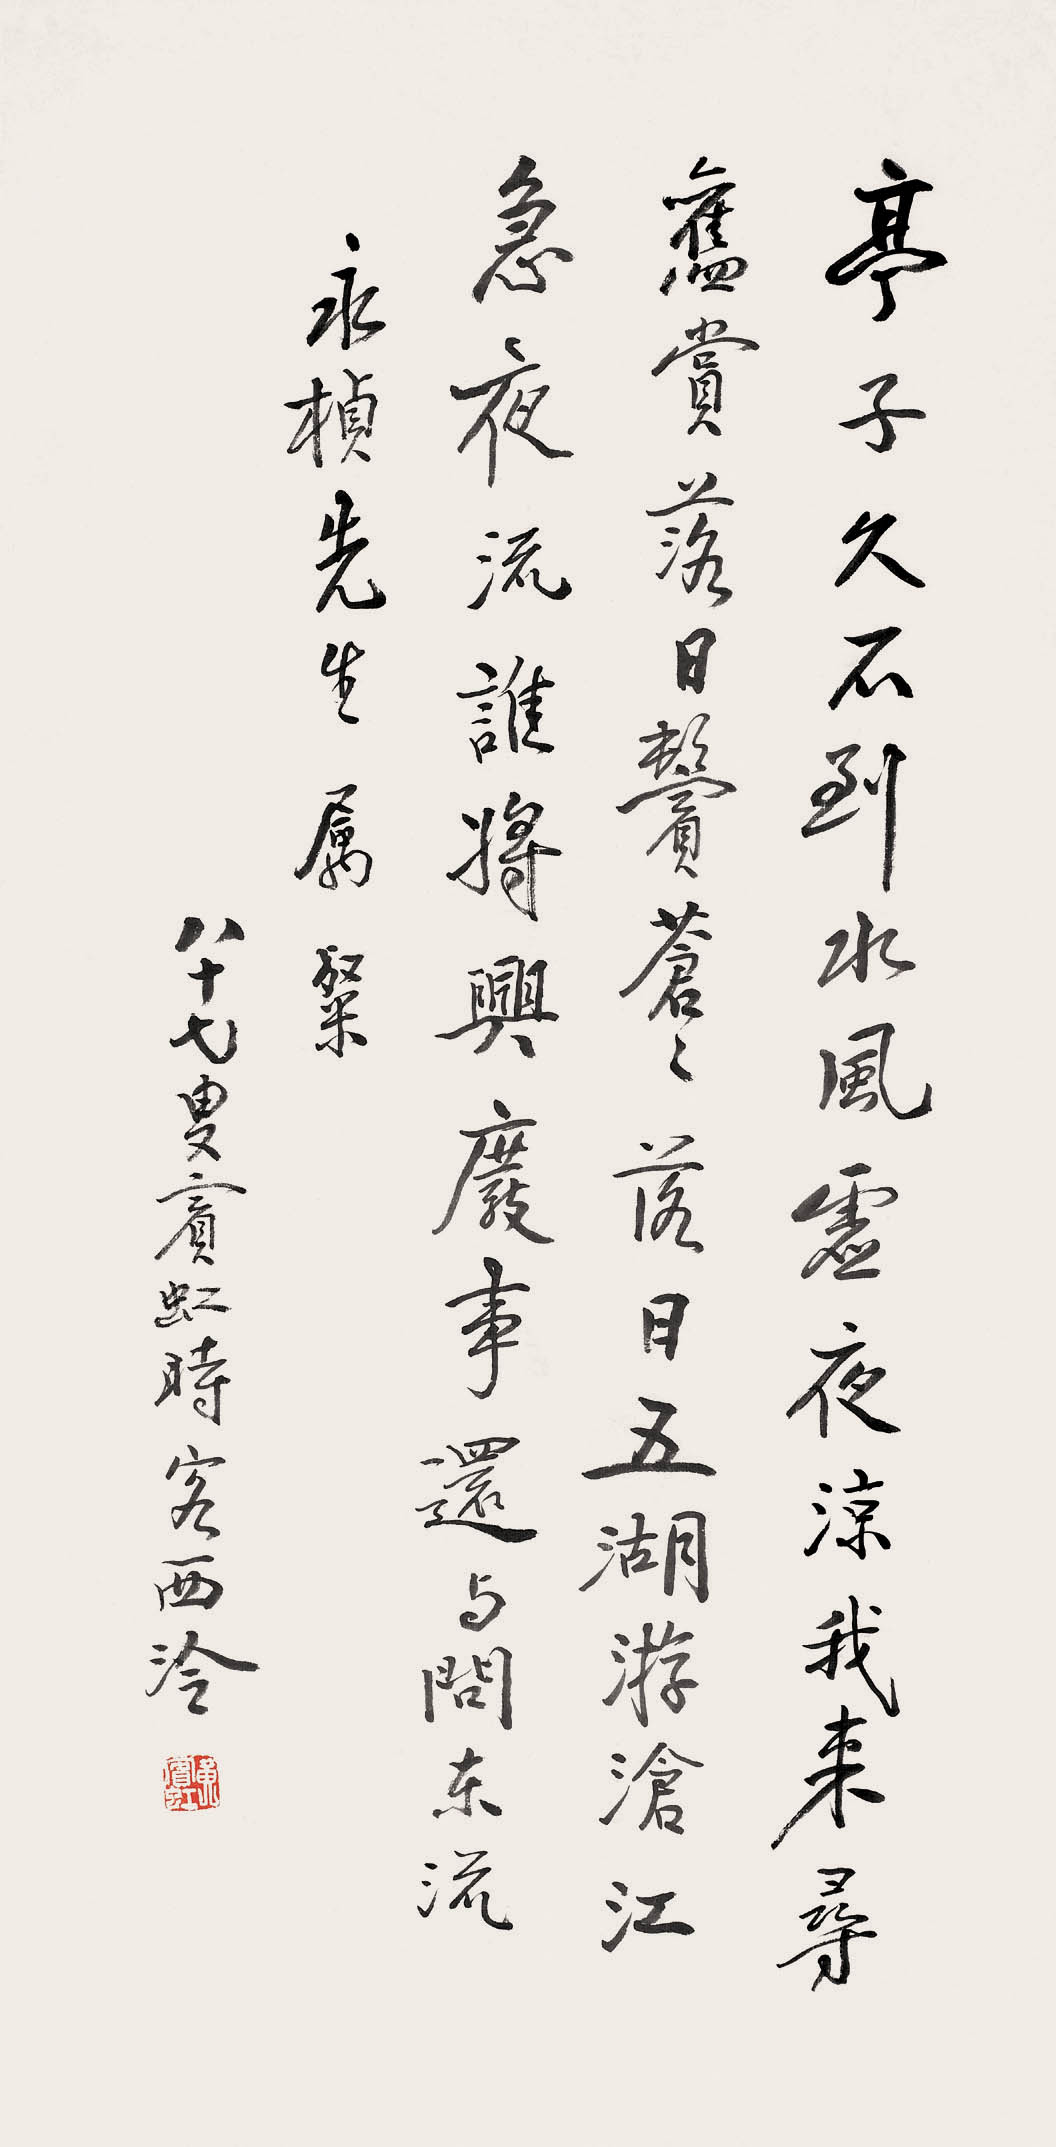 亭子久不到水風虛夜涼我来尋
舊賞落日鬢蒼〻落日五湖游滄江
急夜流誰將興廢事還与問东流
永楨先生属粲
八十七叟賓虹時客西泠
黄賓虹